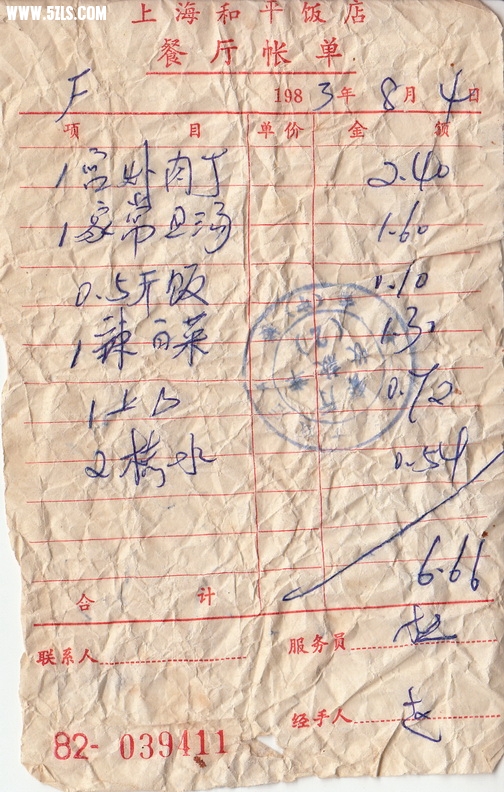 WWW.5ZLS.COM
上海和平饭店
餐厅帐单
F 1983年8月4日
项目 单价 金额
1 宫处肉丁 2.40
1 家常豆汤 1.60
0.5斤饭 0.10
1 辣白菜 1.30
1 上口 0.72
2 桔水 0.54
6.66
合计
联系人 服务员 赵
经手人 赵
82-039411